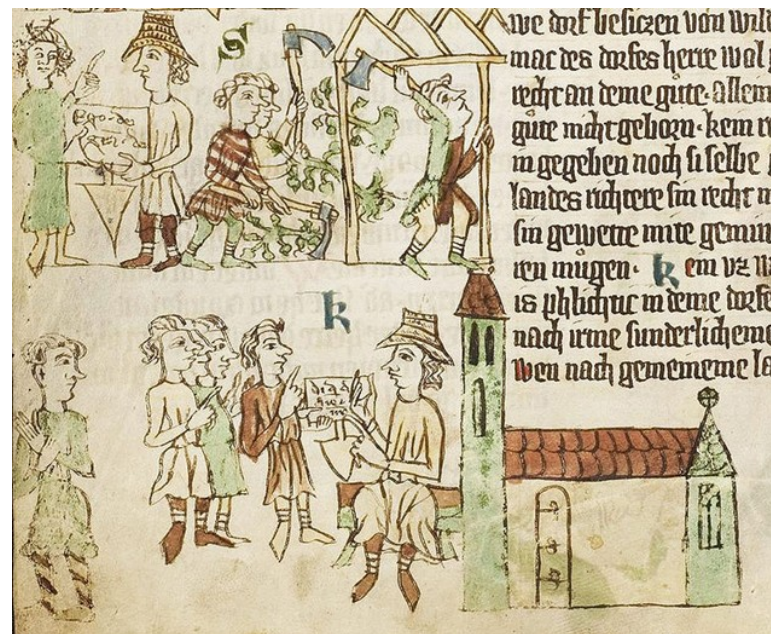 S
we dorf besiczen von wild
mac des dorfes herre wol
recht an deme gůte. allem
gůte nicht geborn. kein re
in gegeben noch si selbe
landes richtere sin recht
sin gewette mite gemin
ren můgen. kein vz w
k
is phlichtic in deme dorfe
nach irme sunderlicheme
wen nach gemeineme la